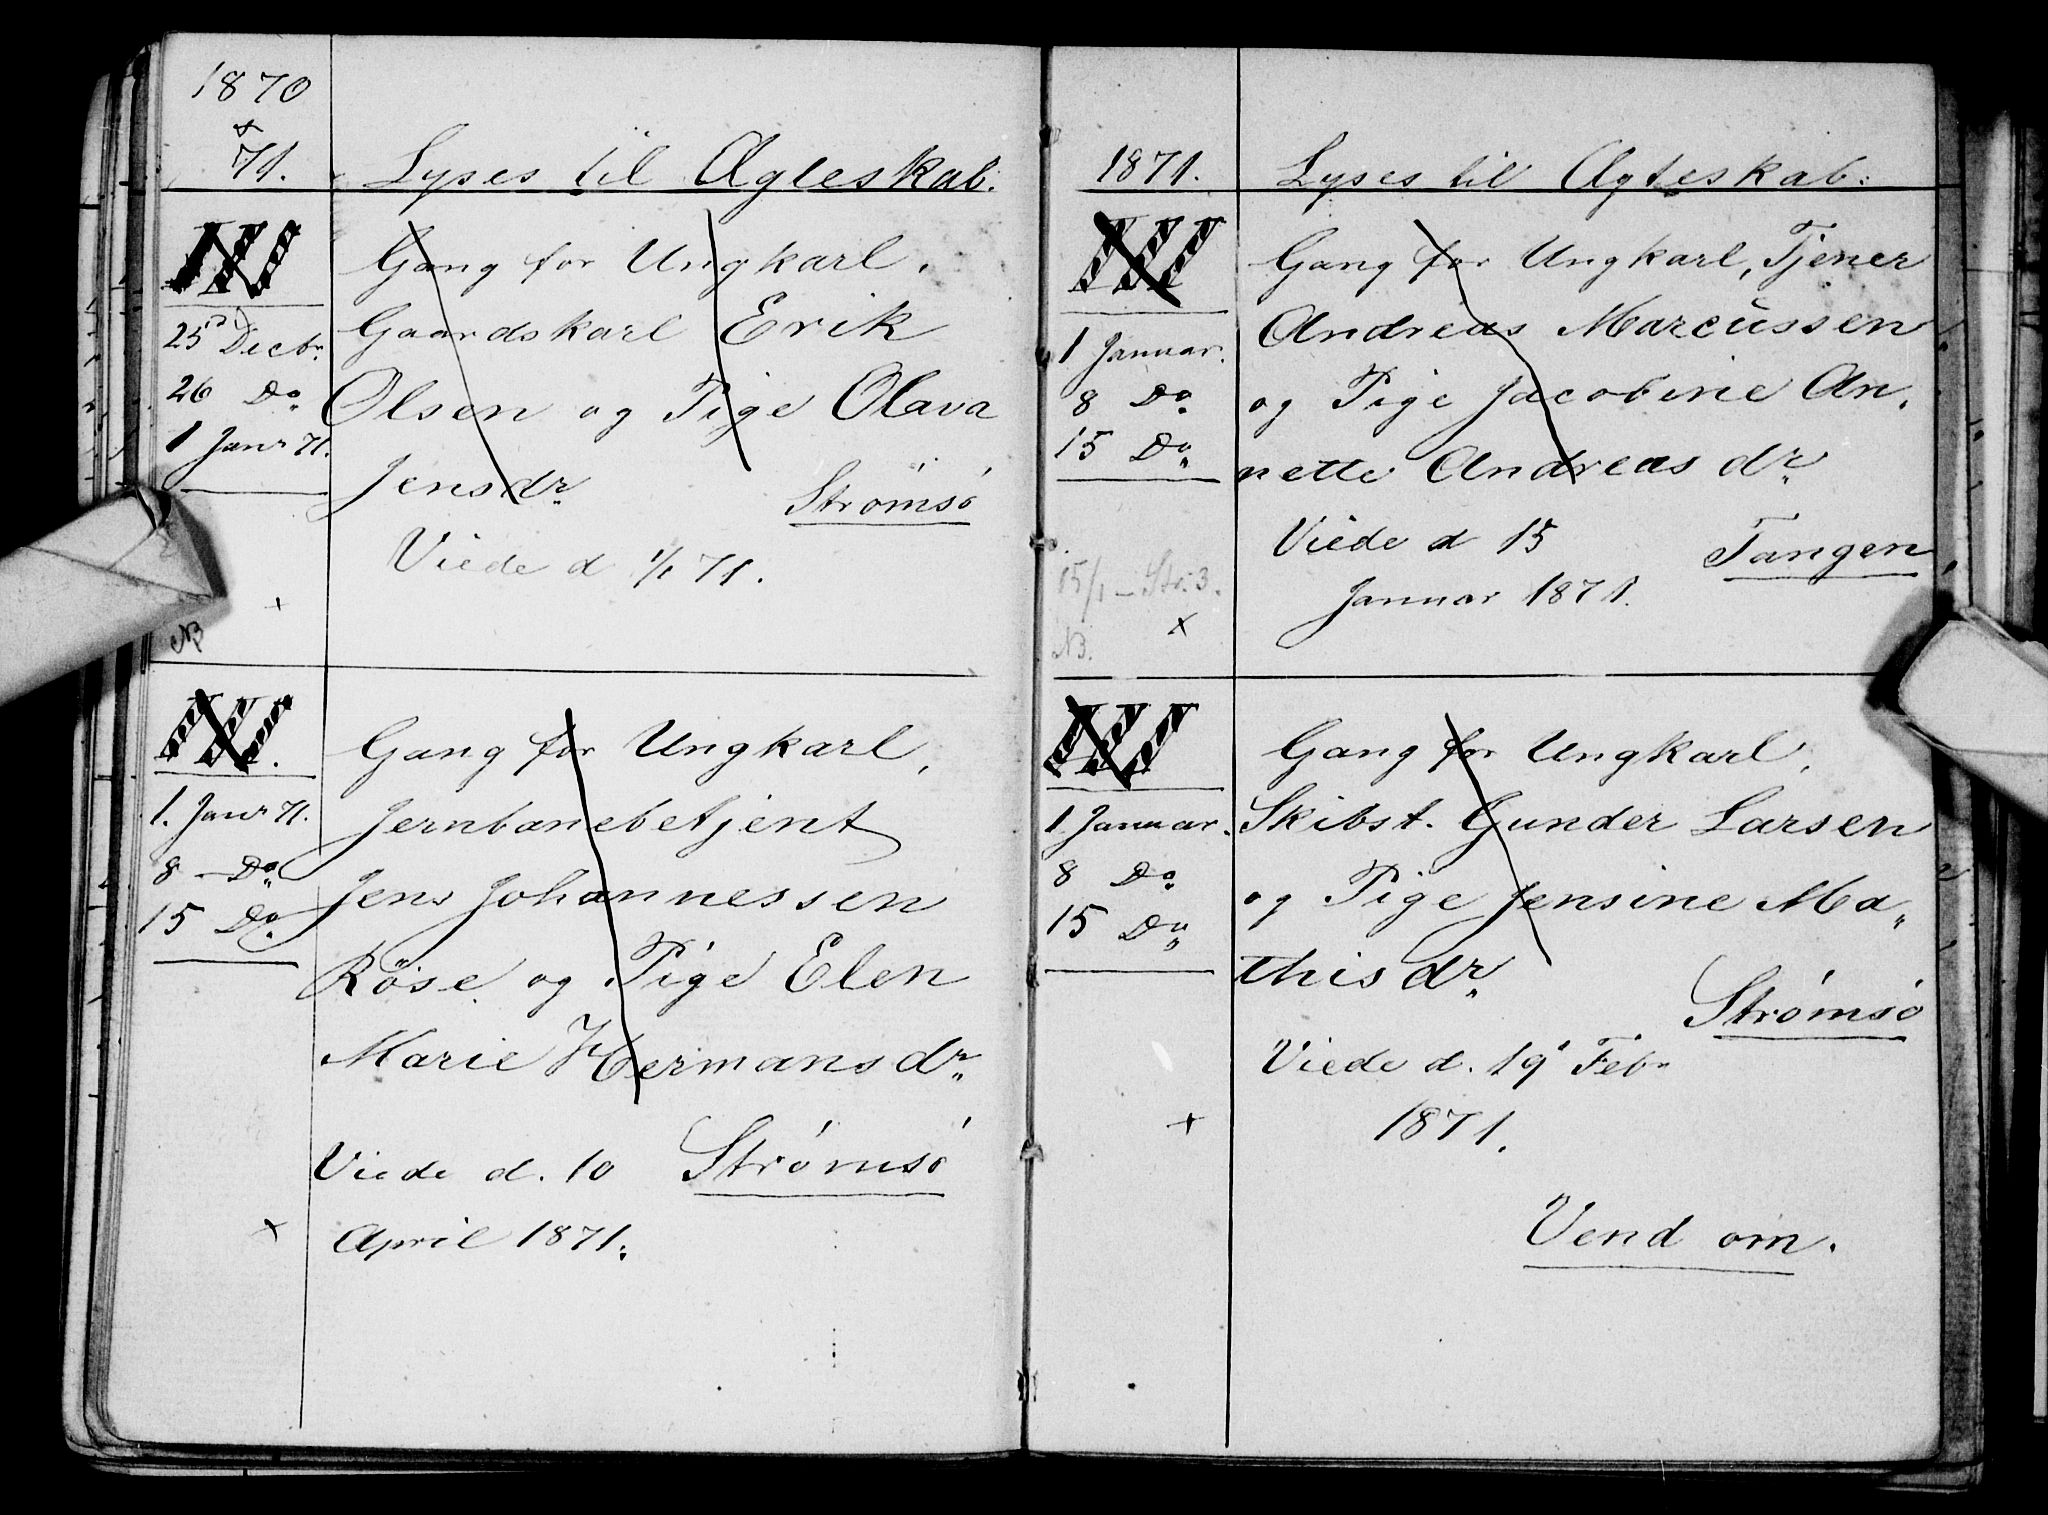 1870
71. Lyses til Ægteskab.
Gang for Ungkarl,
25 Decbr. Gaardskarl Erik
26 Do Olsen og Pige Olava
1 Janr 71. Jensdr.
Strømsö
Viede d 1/1 71.
NB
Gang for Ungkarl,
1. Janr 71. Jernbanebetjent
8 Do Jens Johannessen
15 Do. Röise og Pige Elen
Marie Hermansdr.
Viede d. 10 Strømsö
April 1871.
1871. Lyses til Ægteskab.
III
Gang for Ungkarl, Tjener
1 Januar. Andreas Marcussen
8 Do og Pige Jacobine An,
15 Do nette Andreasdr.
Viede d 15 Tangen
15/1 – Str. 3.
Januar 1871.
NB.
Gang for Ungkarl,
1 Januar. Skibst. Gunder Larsen
8 Do og Pige Jensine Ma„
15 Do thisdr.
Strømsö
Viede d. 19 Febr
1871.
Vend om.